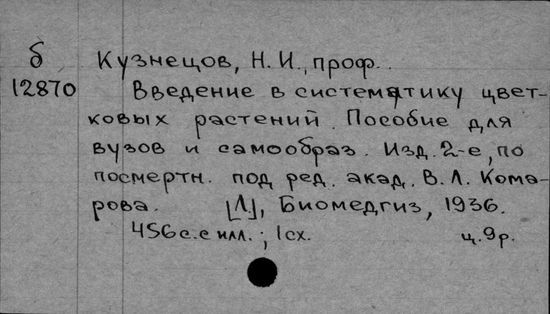 б
12870
Кузнецов, Н. И., проф.
Введение в систематику цвет-
ковых растений. Пособие для
вузов и самообраз. Изд. 2-е, по
посмертн. под ред. акад. В. Л. Кома-
рова. [Л], Биомедгиз, 1936.
456 с. с илл. ; 1 сх. ц. 9 р.